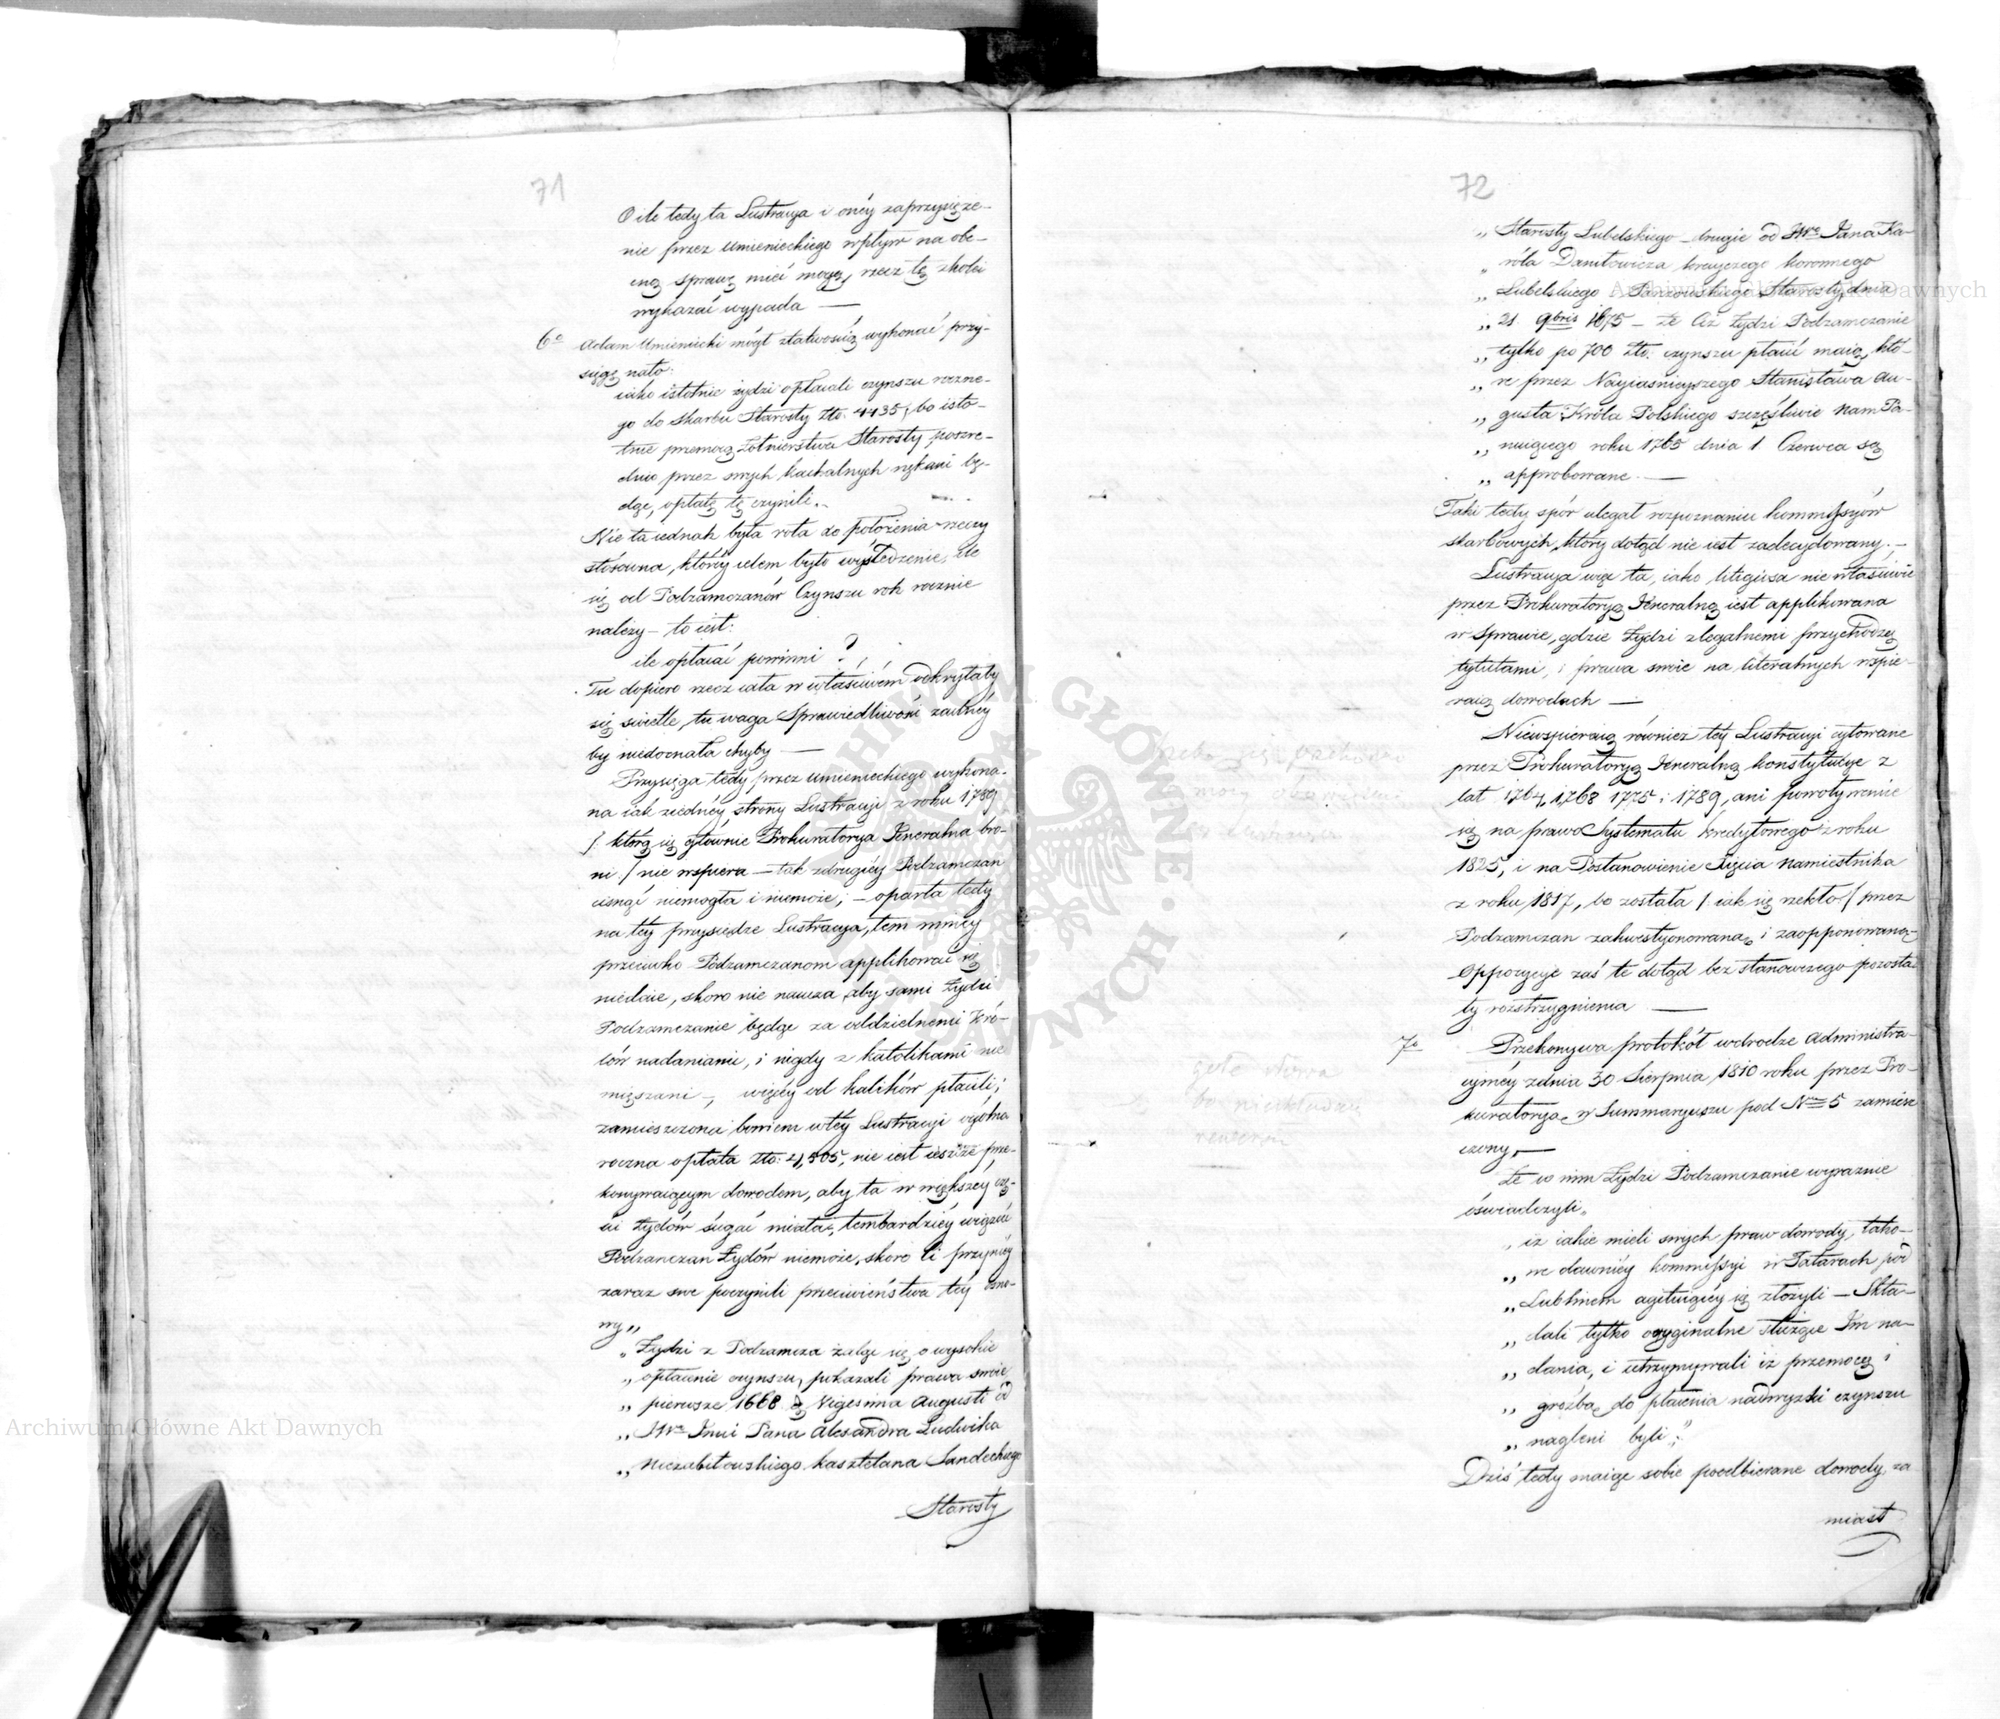 71
O ile tedy ta Lustracya i onéy zaprzysięże-
nie przez Umienieckiego wpływ na obe-
cną sprawę mieć mogą, rzecz tę z kolei
wykazać wypada —
6o Adam Umieniecki mógł z łatwością wykonać przy-
sięgę na to:
iako istotnie żydzi opłacali czynszu roczne-
go do Skarbu Starosty Zło. 4435, bo isto-
tnie przemocą Żołnierstwa Starosty, poszre-
dnio przez swych kachalnych nękani bę-
dąc, opłatę tę czynili.
Nie ta iednak była rota do położenia rzeczy
stósowna, któréy celem było wyśledzenie, ile
się od Podzamczanów Czynszu rok rocznie
należy — to iest:
ile opłacać powinni ?
Tu dopiero rzecz cała w właściwém odkryłaby
się świetle, tu waga Sprawiedliwości żadnéy
by niedoznała chyby —
Przysięga tedy przez Umienieckiego wykona-
na iak z iednéy strony Lustracyi z roku 1789
/: którą się głównie Prokuratorya Jeneralna bro-
ni :/ nie wspiera — tak z drugiéy Podzamczan
ciągnąć niemogła i niemoże; — oparta tedy
na téy przysiędze Lustracya, tem mniéy
przeciwko Podzamczanom applikować się
niedaie, skoro nie naucza, aby sami Żydzi
Podzamczanie będąc za oddzielnemi Kró-
lów nadaniami, i nigdy z katolikami nie
mięszani —, więcéy od kalików płacili;
zamieszczona bowiem w téy Lustracyi ogólna
roczna opłata Zło: 4,505, nie iest ieszcze prze-
konywaiącym dowodem, aby ta w większéy czę-
ści Żydów ściągać miała, tembardziéy wiązać
Podzamczan Żydów niemoże, skoro ci przynaiéy
zaraz swe poczynili przeciwieństwa téy osno-
wy „
„ Żydzi z Podzamcza żaląc się o wysokie
„ opłacenie czynszu, pokazali prawa swoie
„ pierwsze 1668 d Vigesima Augusti od
„ JWo Imci Pana Alexandra Ludwika
„ Niezabitowskiego kasztelana Sandeckiego
Starosty
72
„ Starosty Lubelskiego drugie od JWo Jana Ka-
„ róla Daniłowicza krayczego koronnego
„ Lubelskiego Parczewskiego Starosty, dnia
„ 21 9bris 1675 — że Ciż Żydzi Podzamczanie
„ tylko po 700 Zło. czynszu płacić maią, któ-
„ re przez Nayiaśnieyszego Stanisława Au-
„ gusta Króla Polskiego szczęśliwie Nam Pa-
„ nuiącego roku 1765 dnia 1. Czerwca są
„ approbowane. —
Taki tedy spór ulegał rozpoznaniu kommissyów
skarbowych, który dotąd nie iest zadecydowany. —
Lustracya więc ta, iako litigiosa nie właściwie
przez Prokuratoryą Jeneralną iest applikowana
w Sprawie, gdzie Żydzi z legalnemi przychodzą
tytułami, i prawa swoie na literalnych wspie-
raią dowodach —
Niewspieraią również téy Lustracyi cytowane
przez Prokuratoryą Jeneralną konstytucye z
lat 1764, 1768 1775 i 1789, ani powoływanie
się na prawo Systematu kredytowego z roku
1825, i na Postanowienie Xięcia Namiestnika
z roku 1817, bo została /: iak się rzekło :/ przez
Podzamczan zakwestyonowaną i zaopponowaną,
Oppozycye zaś te dotąd bez stanowczego pozosta-
ły rozstrzygnienia —
7o Przekonywa protokół w drodze Administra-
cyjnéy z dnia 30 Sierpnia 1810 roku przez Pro-
kuratoryą w Summaryuszu pod Nrem 5 zamiesz
czony, —
Że w nim Żydzi Podzamczanie wyraznie
óświadczyli„
„ iż iakie mieli swych praw dowody, tako-
„ we dawniéy kommissyi w Tatarach pod
„ Lublinem agituiącéy się złożyli — Skła-
„ dali tylko oryginalne służące Im na-
„ dania, i utrzymywali iż przemocą i
„ groźbą do płacenia nadwyżki czynszu
„ nagleni byli;"
Dziś tedy maiąc sobie poodbierane dowody, za
miast
Archiwum Główne Akt Dawnych
Archiwum Główne Akt Dawnych
ARCHIWUM GŁÓWNE AKT DAWNYCH